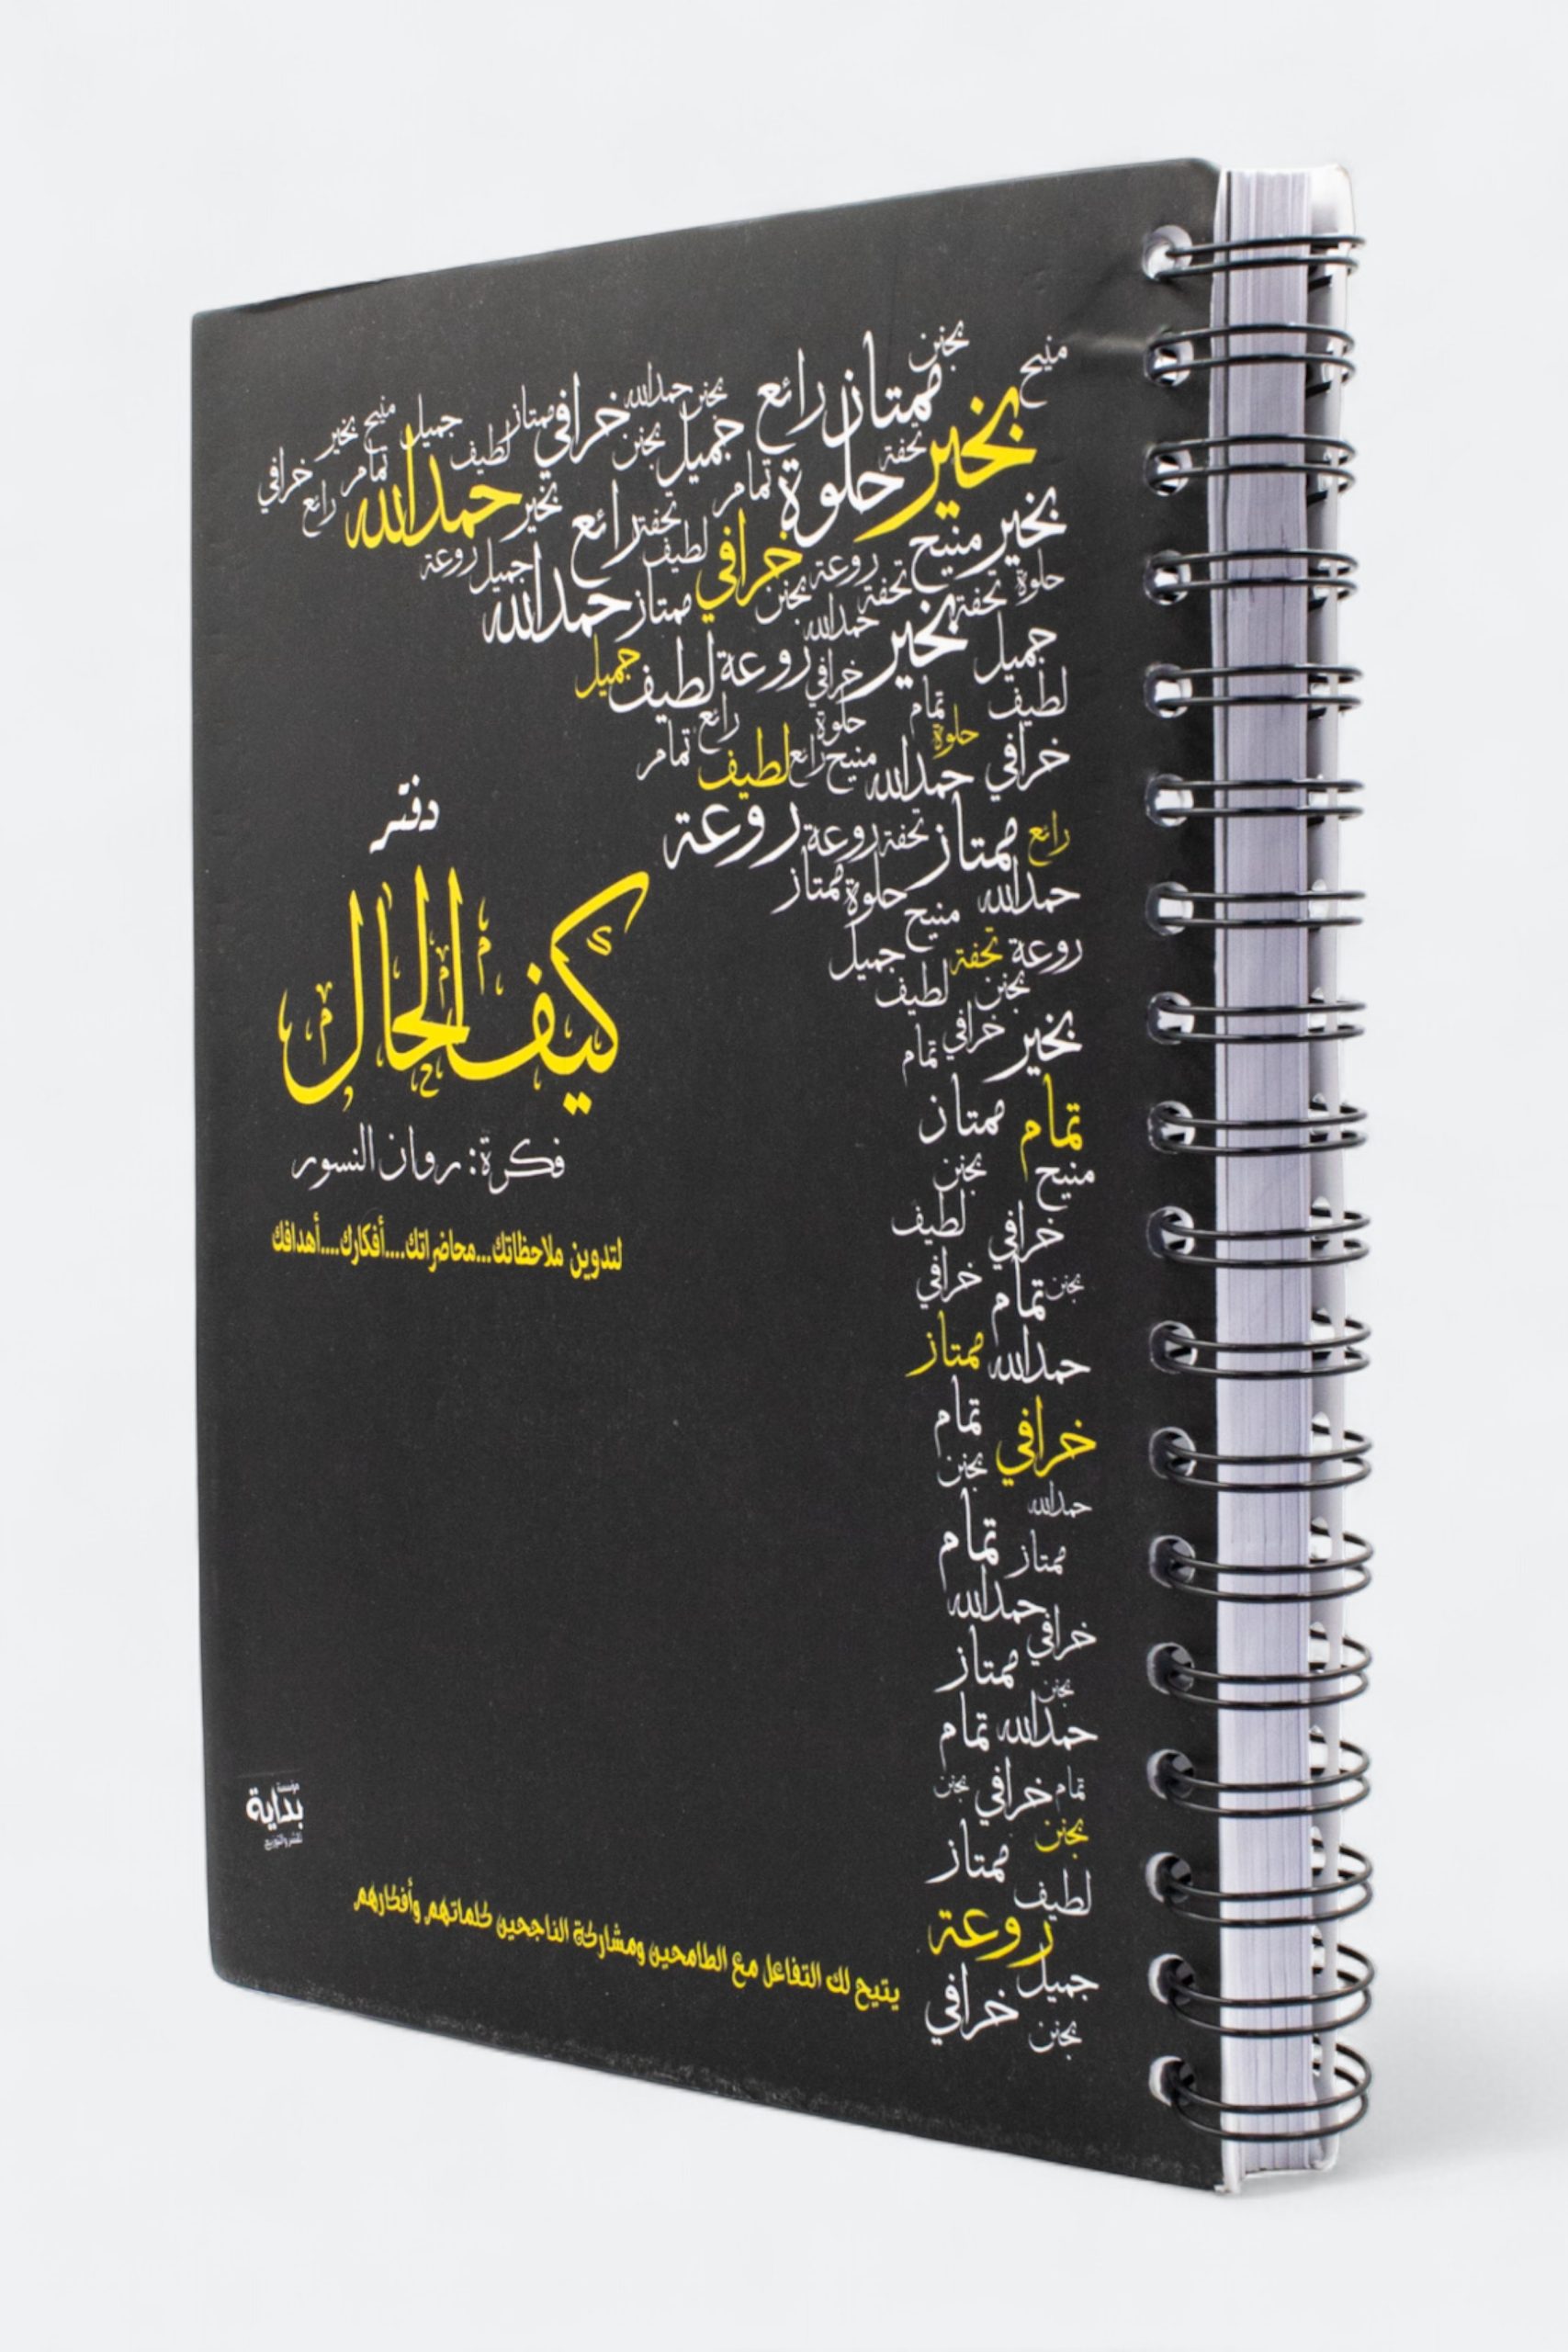 بجنن
منيح
ممتاز
رائع
بجنن
حمدالله
خرافي
ممتاز
جميل
منيح
بخير
بخير
تحفة
جميل
بجنن
لطيف
تمام
خرافي
حلوة
تمام
بخير
حمدالله
رائع
بخير
منيح
تحفة
رائع
لطيف
خرافي
روعة
جميل
روعة
حلوة
تحفة
تحفة
بجنن
ممتاز
حمدالله
بخير
حمدالله
جميل
روعة
لطيف
جميل
خرافي
لطيف
تمام
حلوة
رائع
حلوة
تمام
خرافي
حمدالله
منيح
رائع
لطيف
رائع
ممتاز
تحفة
روعة
روعة
حمدالله
حلوة
ممتاز
منيح
روعة
تحفة
جميل
بجنن
لطيف
بخير
خرافي
تمام
تمام
ممتاز
منيح
بجنن
خرافي
لطيف
بجنن
تمام
خرافي
حمدالله
ممتاز
خرافي
تمام
بجنن
حمدالله
ممتاز
تمام
حمدالله
خرافي
ممتاز
بجنن
حمدالله
تمام
تمام
خرافي
بجنن
بجنن
ممتاز
لطيف
روعة
جميل
خرافي
بجنن
دفتر
كيف الحال
فكرة: روان النسور
لتدوين ملاحظاتك...محاضراتك....أفكارك....أهدافك
مؤسسة
بداية
للنشر والتوزيع
يتيح لك التفاعل مع الطامحين ومشاركة الناجحين كلماتهم وأفكارهم